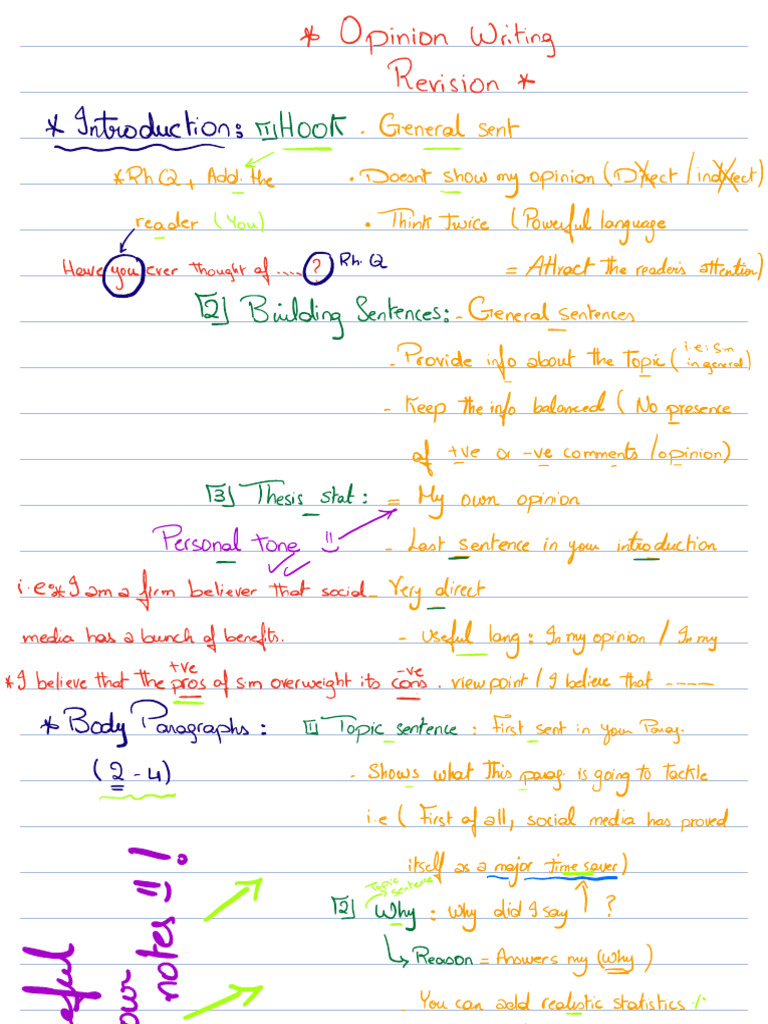 * Opinion Writing
Revision *
* Introduction: [1] Hook . General sent
* Rh Q, Add. the • Doesnt show my opinion (Direct / indirect)
reader (You) • Think twice (Powerful language
Have you ever thought of .... ? Rh. Q = Attract the reader's attention)
[2] Building Sentences: - General sentences
- Provide info about the Topic ( i.e: s.m in general)
- Keep the info balanced ( No presence
of +ve or -ve comments / opinion)
[3] Thesis stat: = My own opinion
Personal tone - Last sentence in your introduction
i.e: * I am a firm believer that social - Very direct
media has a bunch of benefits. - useful lang : In my opinion / In my
+ve -ve
* I believe that the pros of s.m overweight its cons . view point / I believe that -----
* Body Paragraphs: [1] Topic sentence : First sent in your Parag.
(2 - 4) - Shows what this parag. is going to tackle
i.e ( First of all, social media has proved
itself as a major time saver)
Topic sentence
[2] Why : Why did I say ?
Reason = Answers my (why)
. You can add realistic statistics %
notes !! !